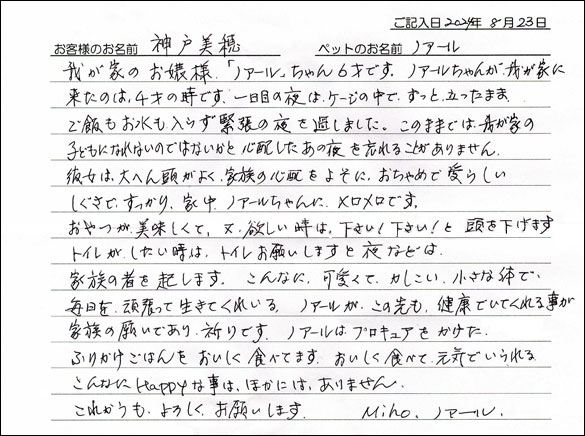 ご記入日2021年 8月23日
お客様のお名前 神戸美穂 ペットのお名前 ノアール
我が家のお嬢様、「ノアール」ちゃん6才です。ノアールちゃんが、我が家に
来たのは、4才の時です。一日目の夜は、ケージの中で、ずっと、立ったまま
ご飯もお水も入らず緊張の夜を過しました。このままでは、我が家の
子どもになれないのではないかと心配したあの夜を忘れることがありません。
彼女は、大へん頭がよく、家族の心配をよそに、おちゃめで愛らしい
しぐさで、すっかり、家中、ノアールちゃんに、メロメロです。
おやつが、美味しくて、又、欲しい時は、下さい!下さい!と頭を下げます
トイレが、したい時は、トイレお願いしますと夜などは、
家族の者を起します。こんなに、可愛くて、かしこい、小さな体で、
毎日を、頑張って生きてくれいる、ノアールが、この先も、健康でいてくれる事が
家族の願いであり、祈りです。ノアールは、プロキュアをかけた、
ふりかけごはんをおいしく食べてます。おいしく食べて、元気でいられる
こんなにHappyな事は、ほかには、ありません。
これからも、よろしく、お願いします。 Miho、ノアール.